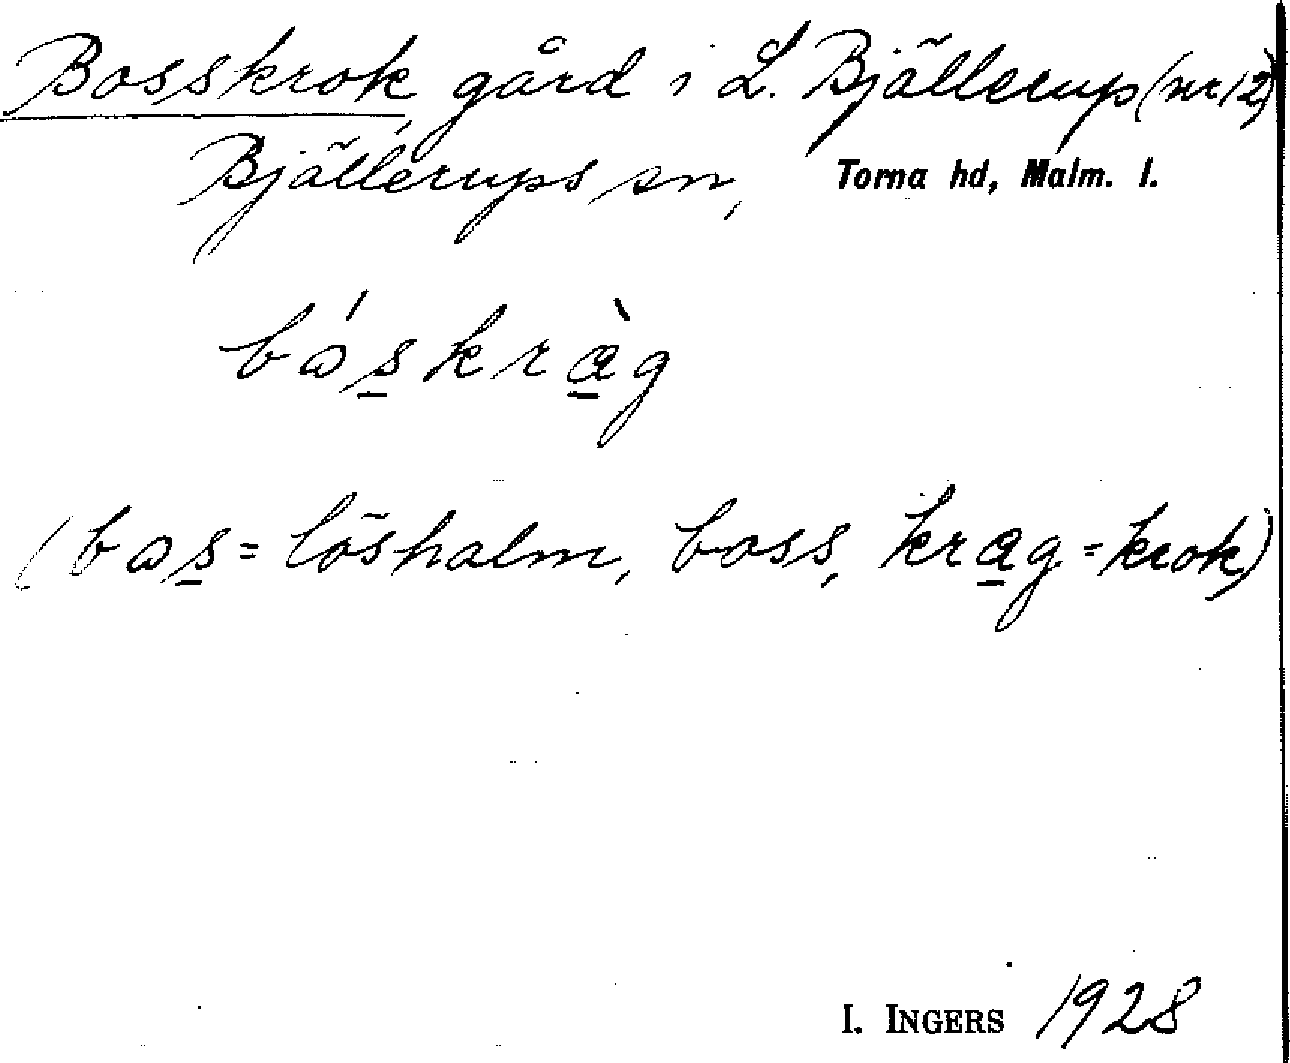 Bosskrok gård i L. Bjällerup (nr 12)
Bjällerups sn, Torna hd, Malm. l.
bɷ́s̲kræ̲̀g
(bɷs̲ = löshalm, boss, kræ̲g = krok)
I. INGERS 1928